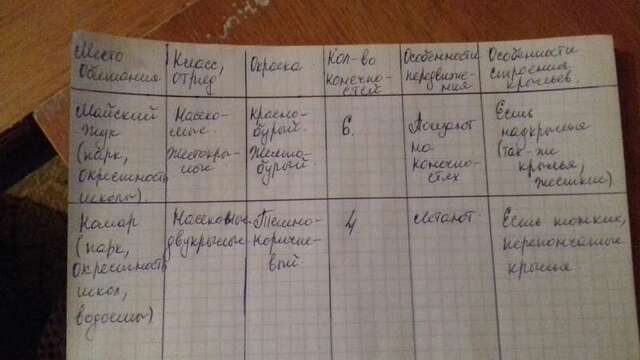 Место Обитания.
Класс, отряд.
Окраска.
Кол-во конечно-стей
Особенности передвиже-ния
Особенности строения крыльев.
Майский жук (парк, окрестность школы)
Насеко-мые. Жесткокры-лые
Красно-бурый. Желто-бурый.
6.
Ползают на конечно-стях
Есть надкрылья (так-же крылья, жесткие).
Комар (парк, окрестность школ, водоемы)
Насекомые двукрылые
Темно-коричне-вый.
4
Летают.
Есть тонкие, перепончатые крылья